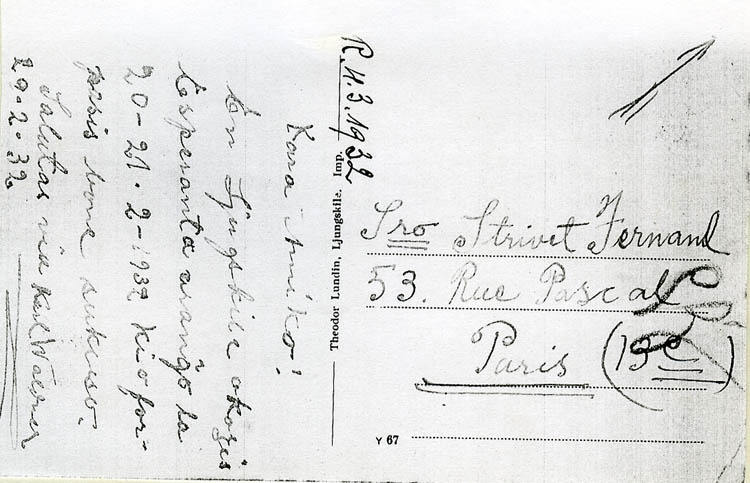 Kara Amiko!
En Ljugskile okazis
Esperanta aranĝo la
20-21.2-1932 kio for-
pasis bone sukceso.
Salutas via Karl
29.2.32
R. 4.3.1932
Theodor Lundin, Ljungskile. Imp.
Sro Strivet Fernand
53. Rue Pascal
Paris (13e)
Y 67